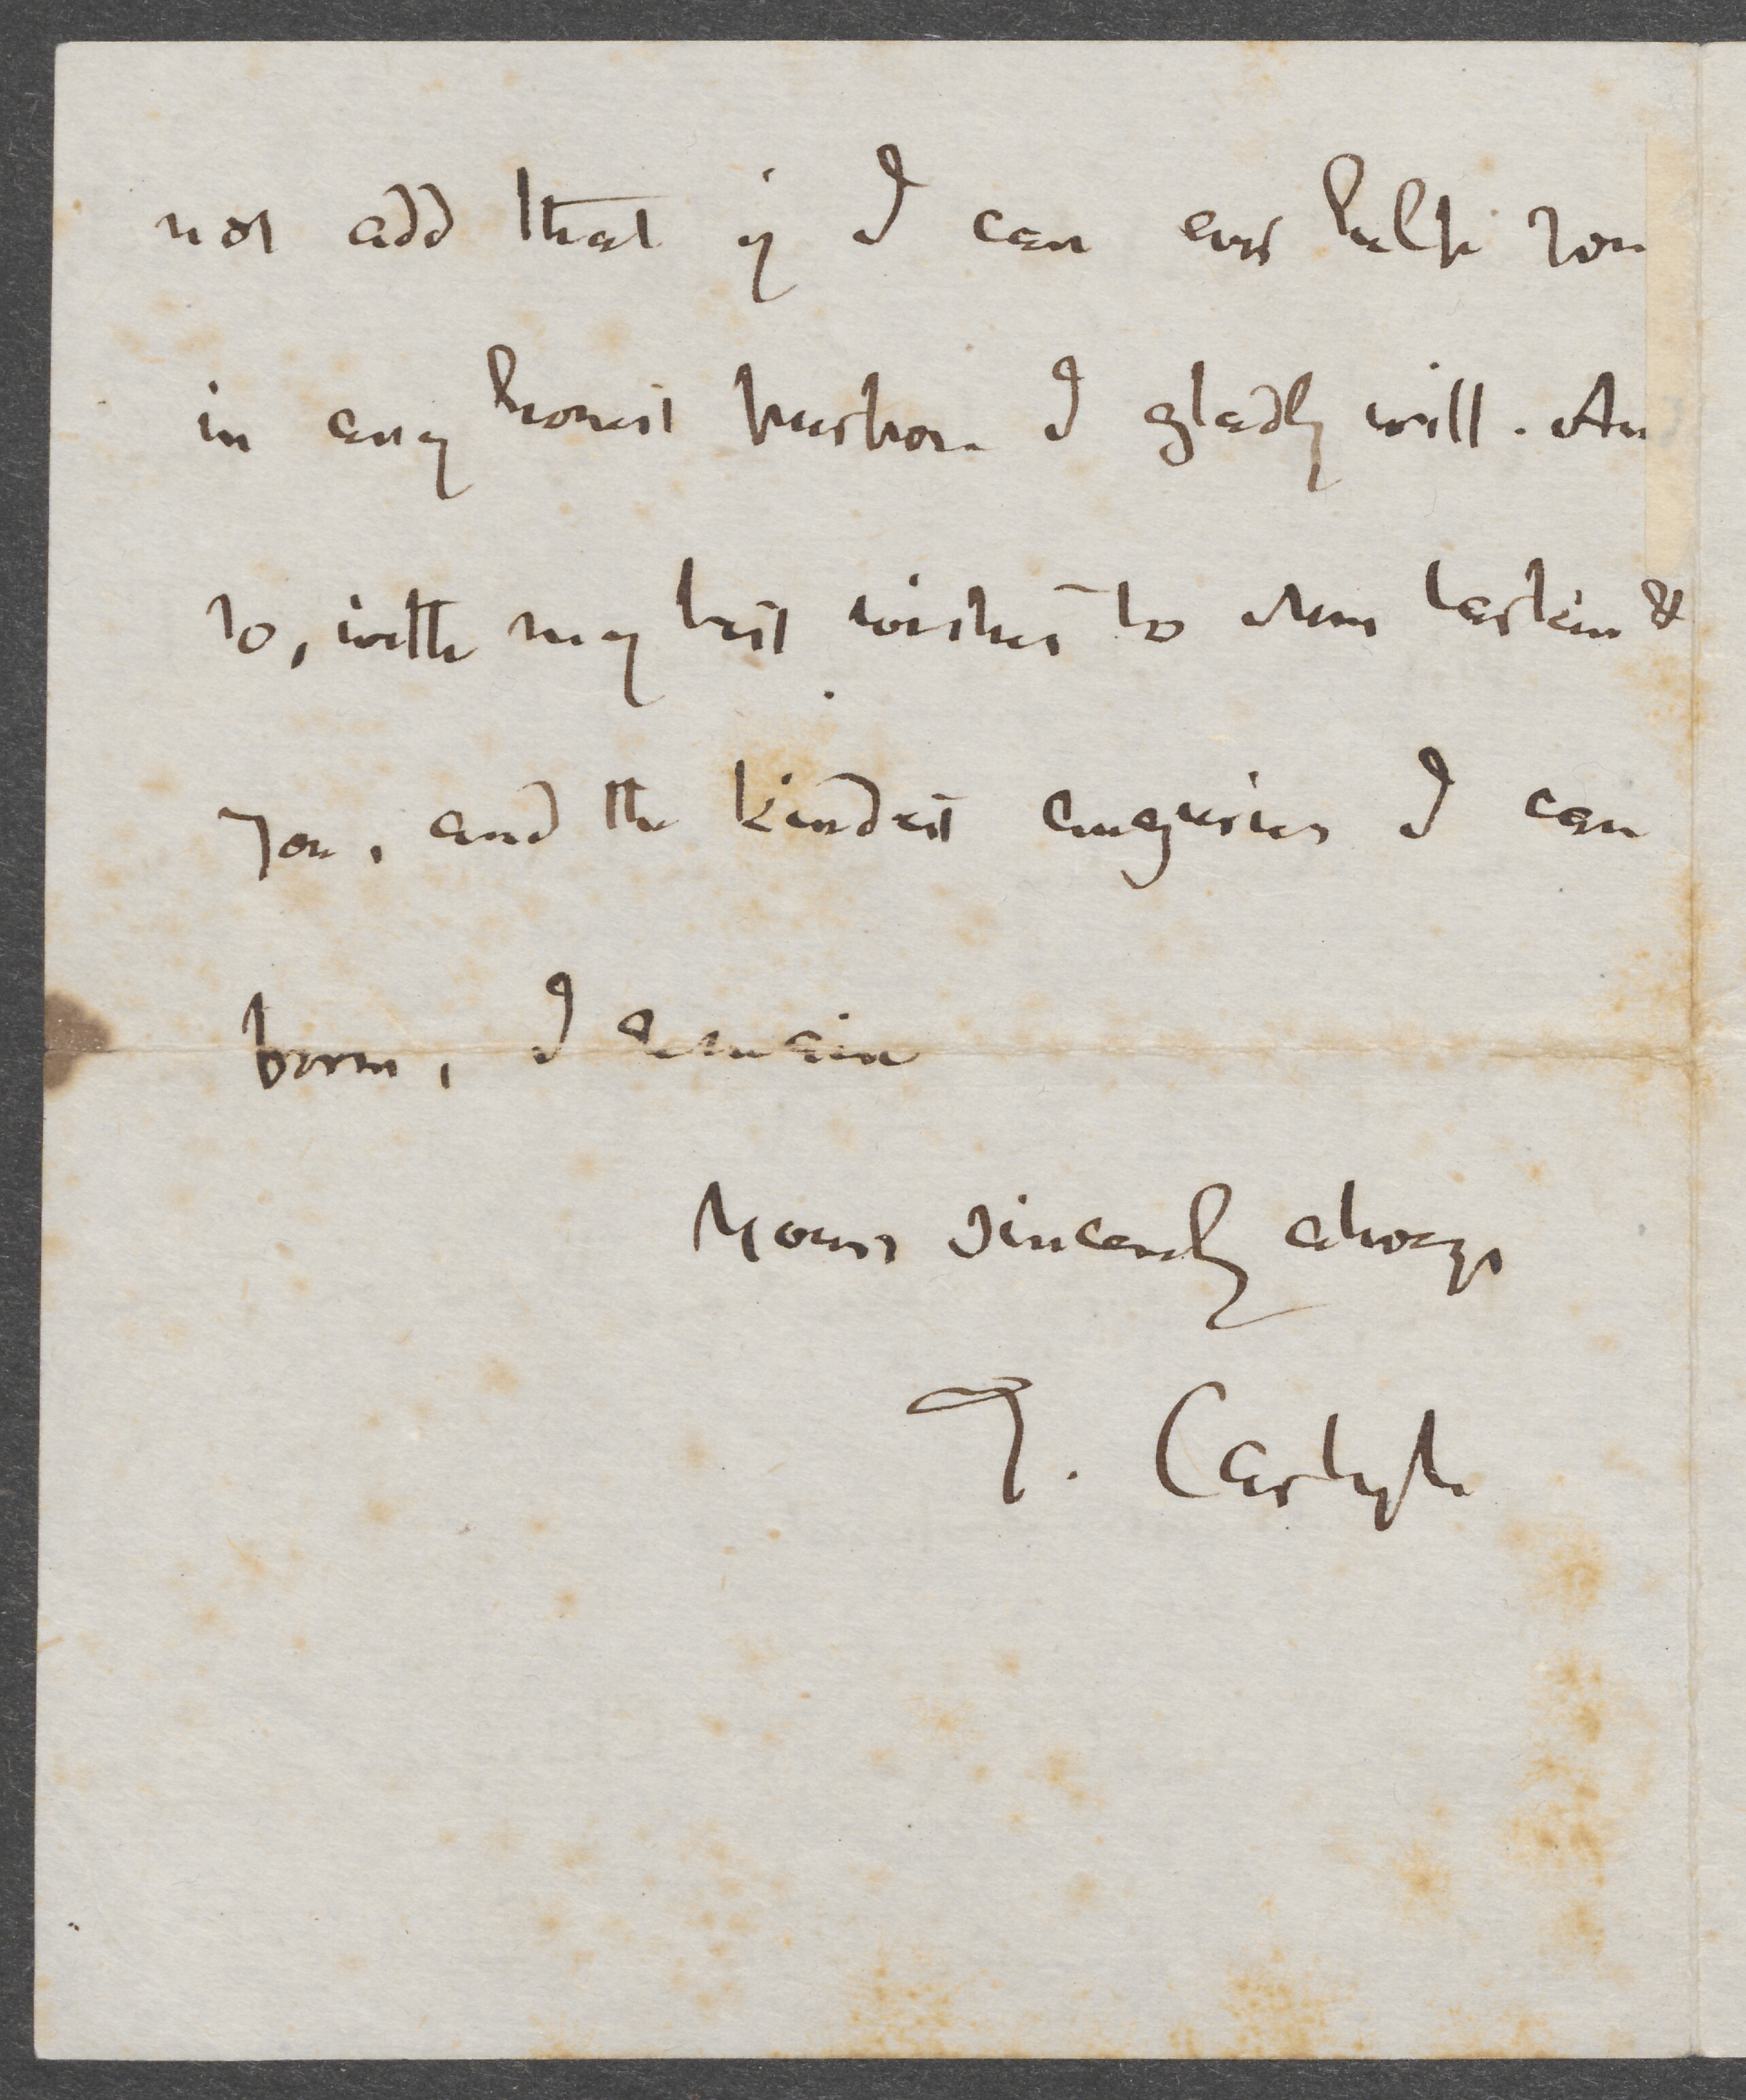 not add that if I can ever help you
in any honest fashion I gladly will. And
so, with my best wishes to Mrs Larkin &
you, and the kindest enquiries I can
form, I remain
Yours sincerely always
T. Carlyle